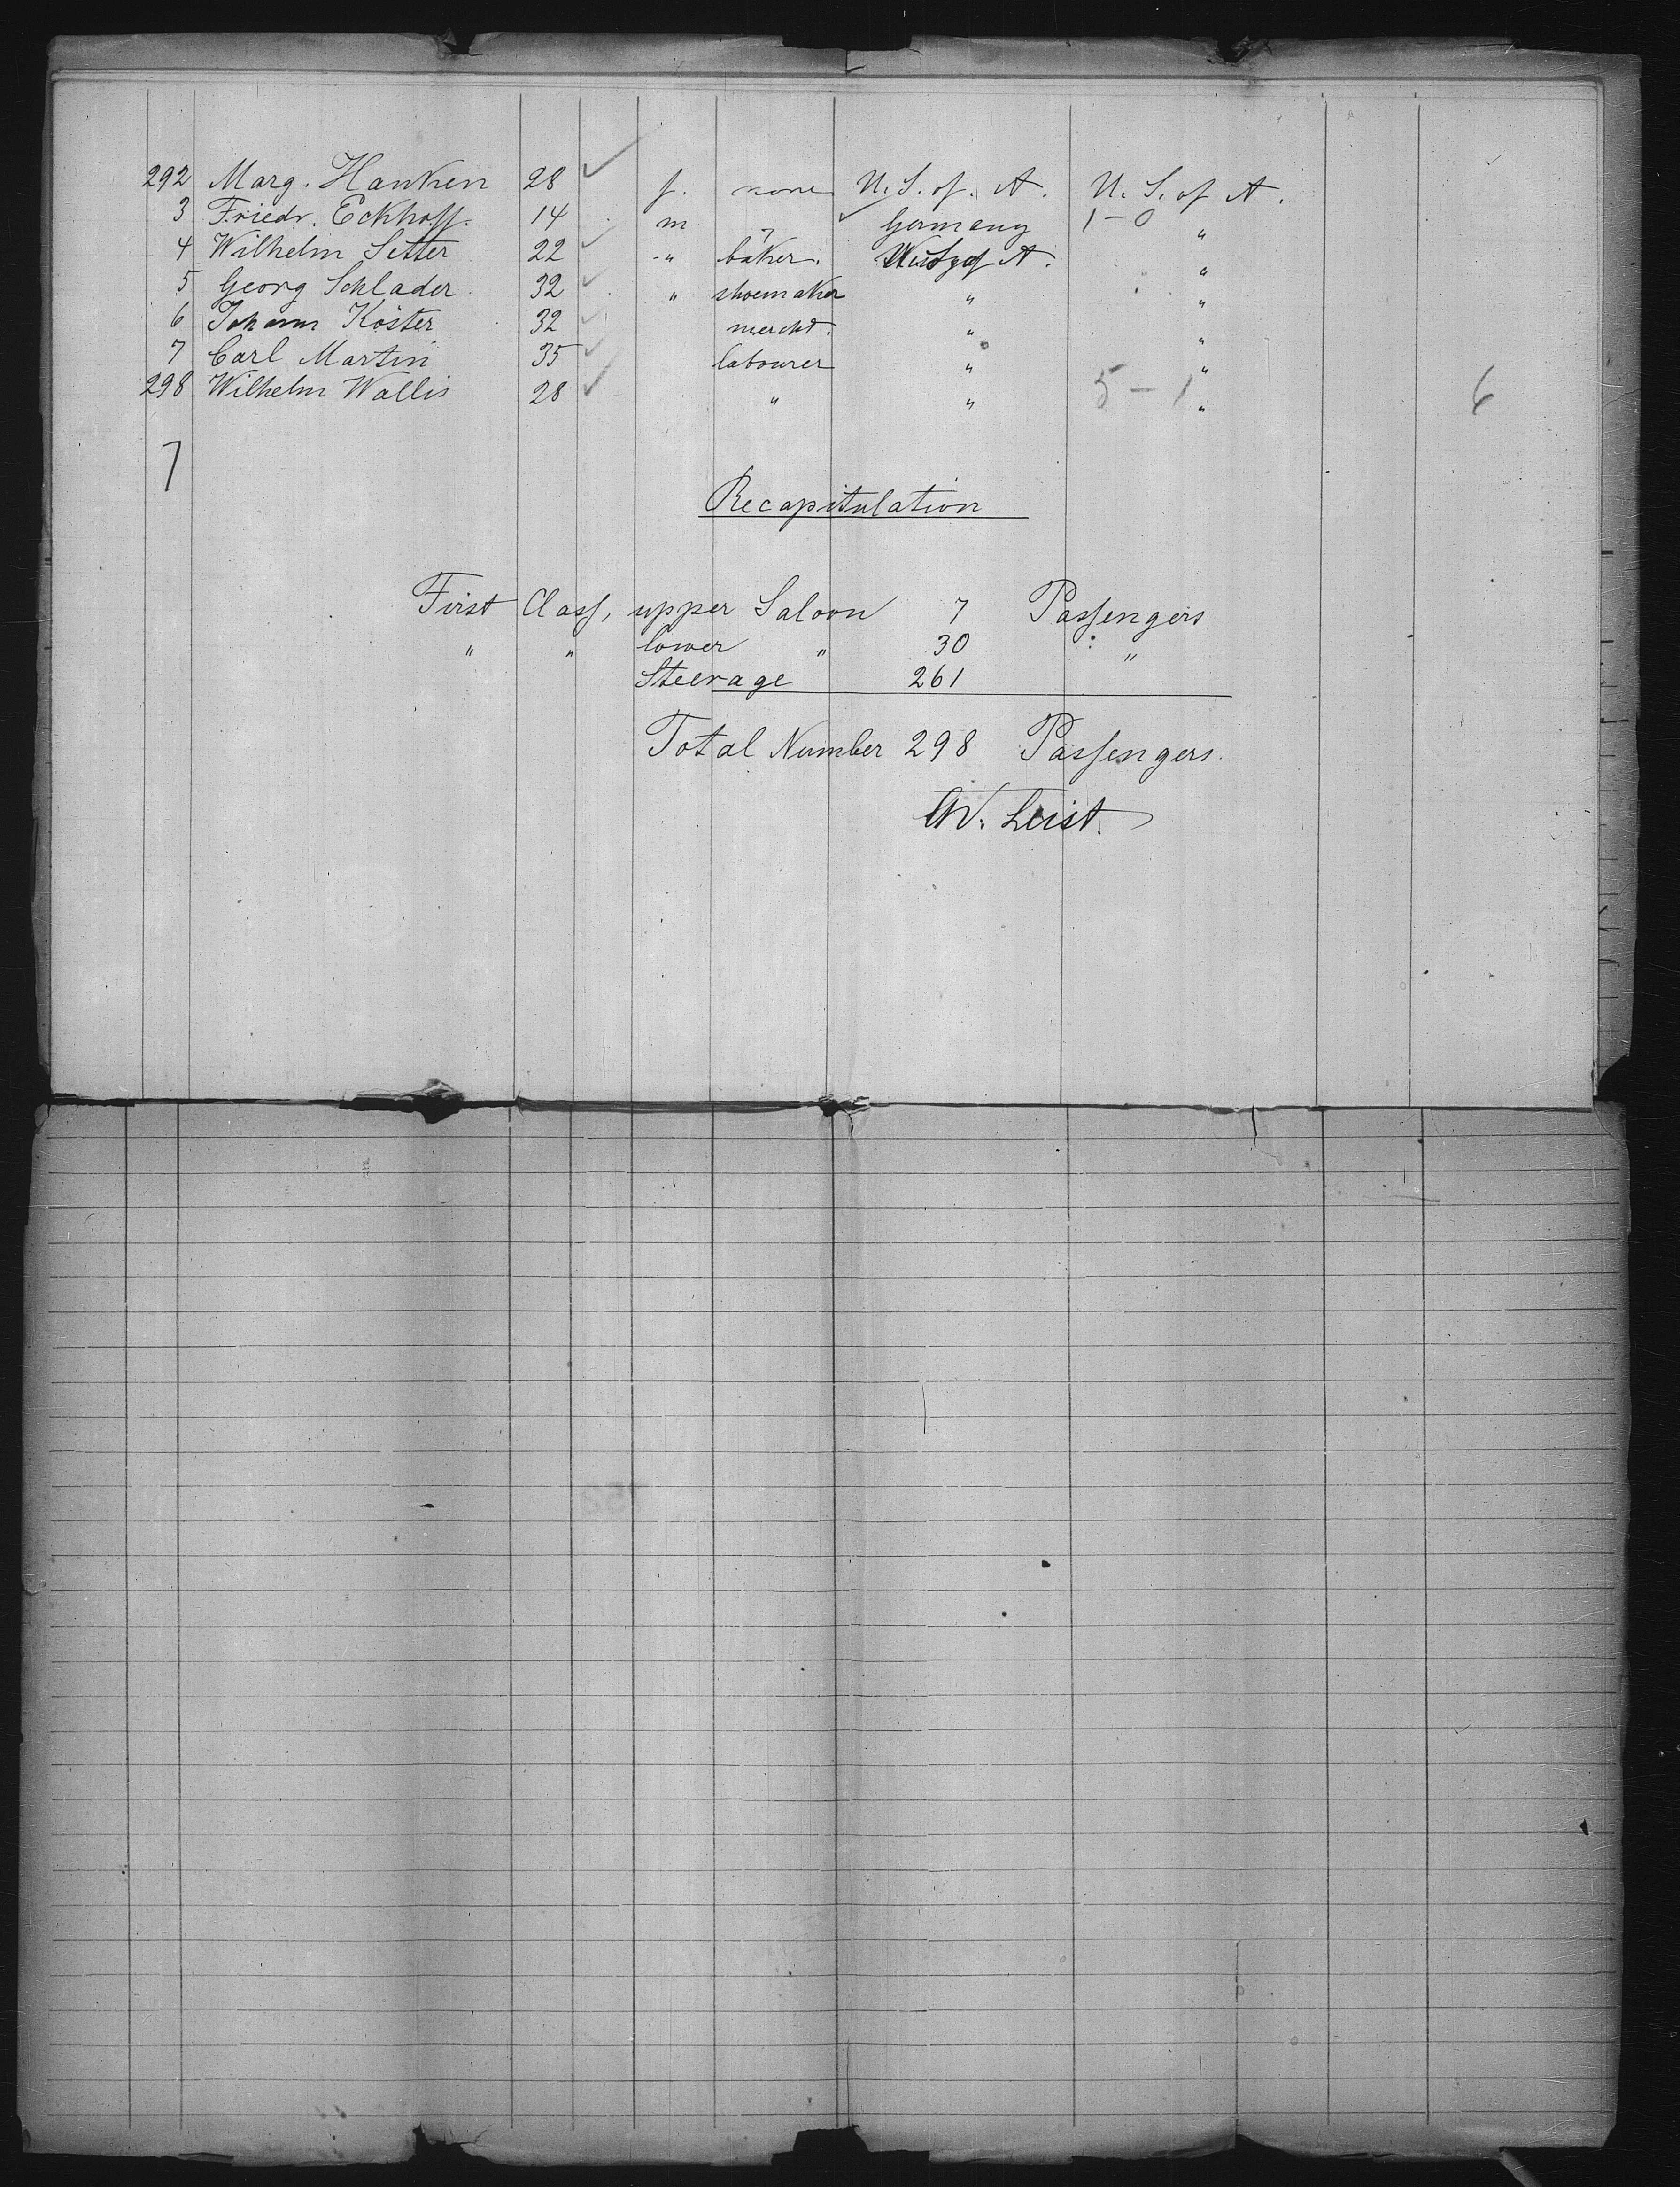 292 Marg. Hanken 28 ✓ f. none U. S. of. A. U. S. of A.
3 Friedr. Eckhoff. 14 m " ✓ Germany 1-0 "
4 Wilhelm Setter 22 ✓ " baker. U. S. of A. "
5 Georg Schlader. 32 ✓ " shoemaker " "
6 Johann Köster 32 ✓ mercht. " "
7 Carl Martin 35 ✓ labourer " "
298 Wilhelm Wallis 28 ✓ " " 5-1 " 6
7
Recapitulation
First Class, upper Saloon 7 Passengers
" " lower " 30 "
Steerage 261
Total Number 298 Passengers.
W. Leist.